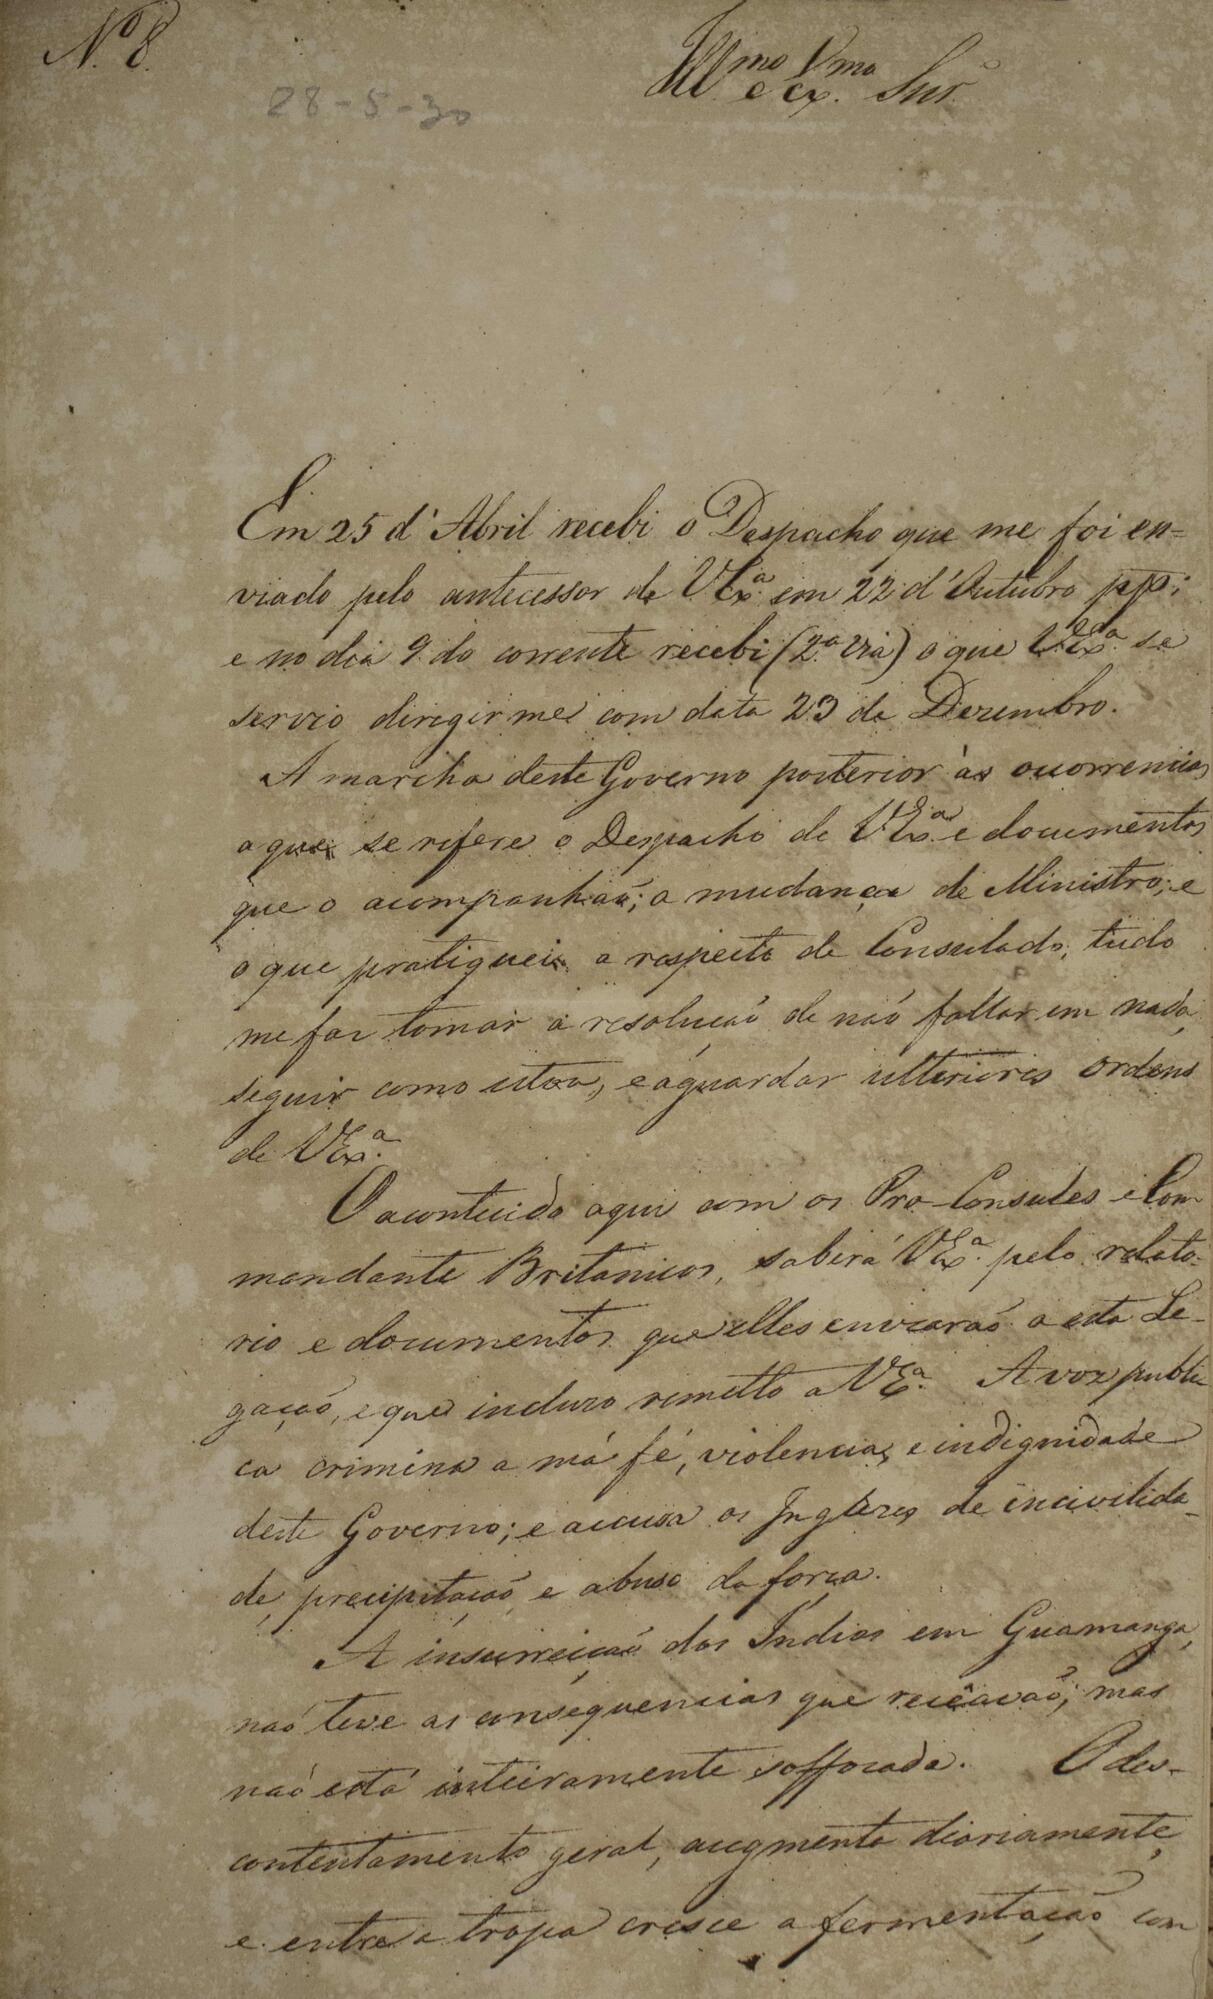 Nº 8.
28-5-30
Illmo e Exmo Snr.
Em 25 d'Abril recebi o Despacho que me foi en-
viado pelo antecessor de VExª. em 22 d'Outubro pp;
e no dia 9 do corrente recebi (2ª via) o que VExª. se
servio dirigir me com data 23 de Dezembro.
A marcha deste Governo posterior ás ocorrencias
a que se refere o Despacho de VExª. e documentos
que o acompanhaõ; a mudança de Ministro; e
o que pratiquei a respeito de Consulado, tudo
me faz tomar a resoluçaõ de naõ faltar em nada,
seguir como estou, e aguardar ulteriores ordens
de VExª.
O acontecido aqui com os Pro-Consules e Com
mandante Britanicos, saberá VExª. pelo relato-
rio e documentos que elles enviaraõ a esta Le-
gaçaõ, e que incluzo remetto a VEª. A voz publi
ca crimina a má fé, violencia, e indignidade
deste Governo; e accusa os Inglezes de incivilida-
de, precipitaçaõ e abuso da força.
A insurreiçaõ dos Indios em Guamanga,
naõ teve as consequencias que receavaõ; mas
naõ está inteiramente soffocada. O des-
contentamento geral, augmenta diariamente,
e entre a tropa cresce a fermentaçaõ com